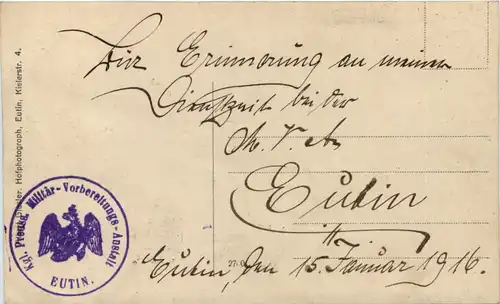 Zur Erinnerung an meine
Dienstzeit bei der
M. V. A.
Eutin
Eutin, den 15. Januar 1916.
Kgl. Preuß. Militär-Vorbereitungs-Anstalt
EUTIN.
Hofphotograph, Eutin, Kielerstr. 4.